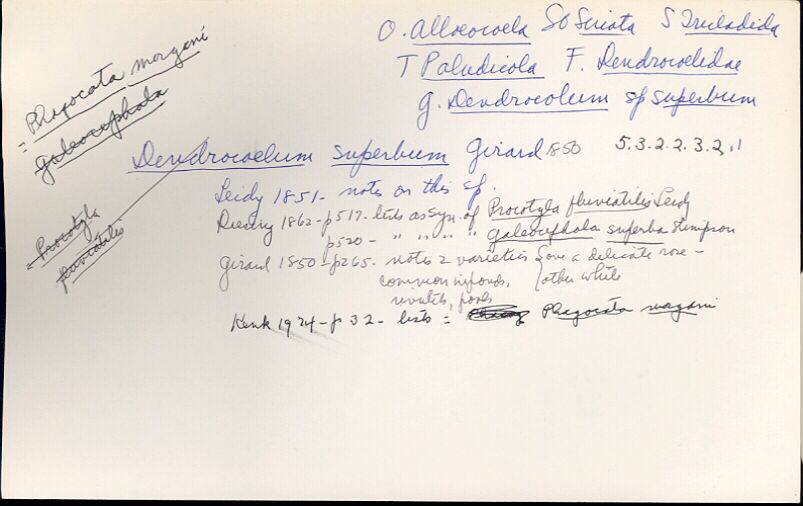 O. Alloeocoela SO Seriata S Tricladida
T Paludicola F. Dendrocoelidae
g. Dendrocolum sp superbum
Phagocata morgani
= galeocephala
Dendrocoelum superbum Girard 1850 5.3.2.2.3.2.1
= Procotyla
fluviatilis
Leidy 1851 - notes on this sp.
Diesing 1862 - p 517. lists as syn. of Procotyla fluviatilis Leidy
p520 - " " " " galeocephala superba Stimpson
Girard 1850 - p265. notes 2 varieties { one a delicate rose -
common in ponds, { other white
rivulets, pools
Kenk 1974 - p 32 - lists = Phagocata morgani